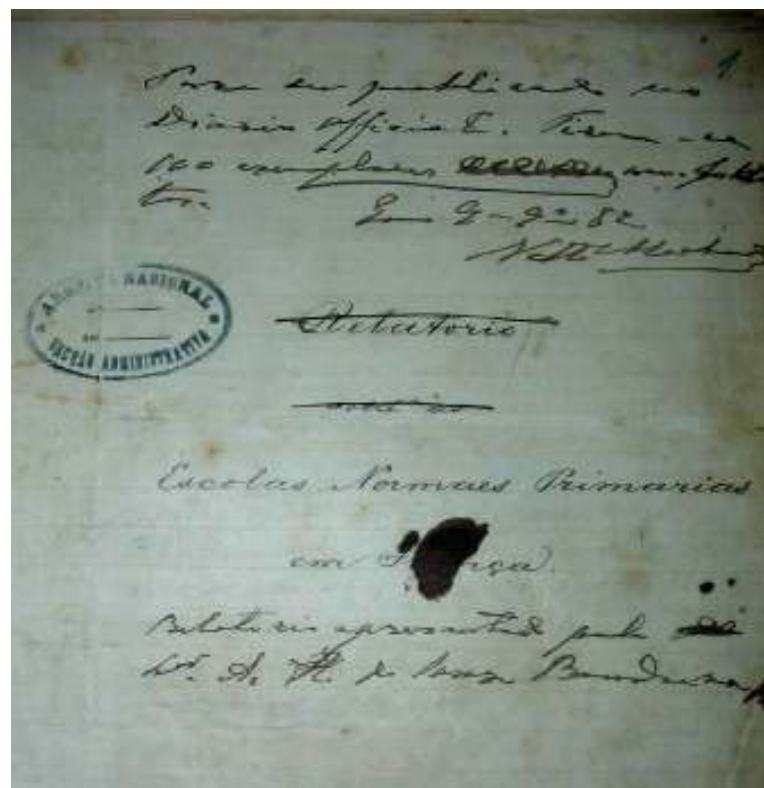 1
Para ser publicado no
Diario Official. Tirem-se
100 exemplares em folhe-
tos.
9 82
ARCHIVO NACIONAL
SECÇÃO ADMINISTRATIVA
Relatorio
sobre as
Escolas Normaes Primarias
em
Relatorio apresentado pelo
Dr. A. H. de Souza Bandeira